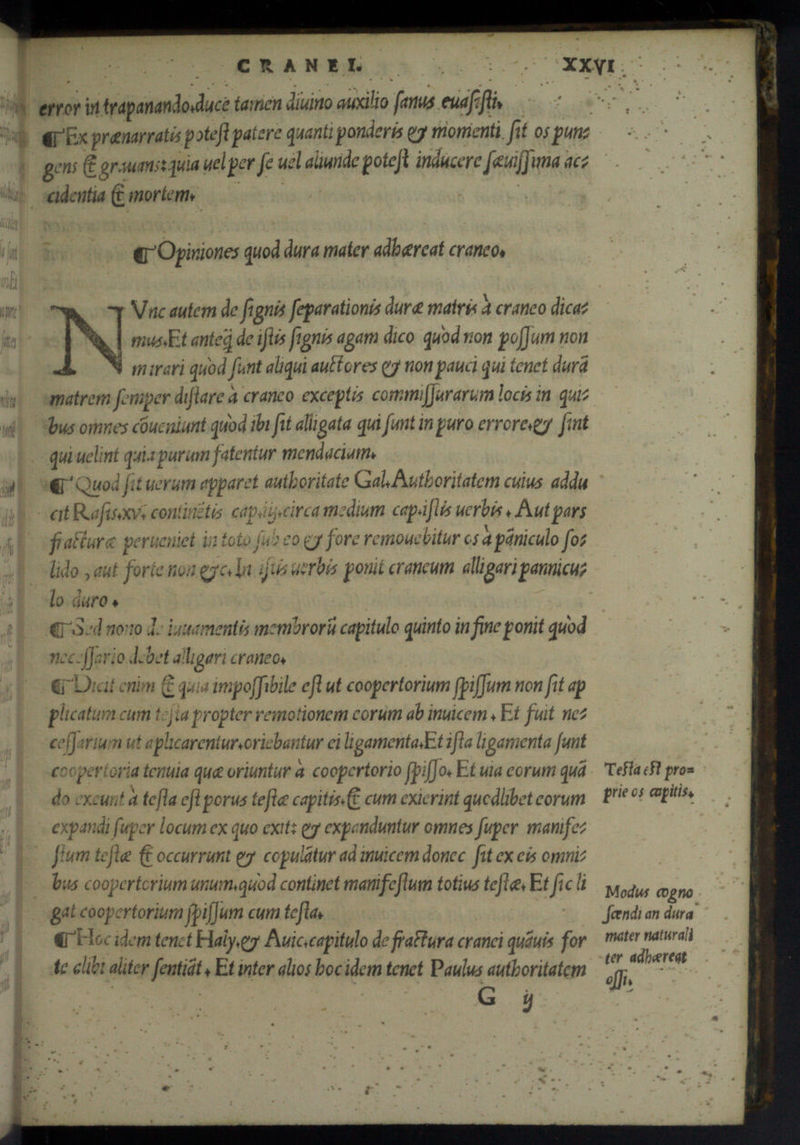 CRANEI. XXVI
error in trapanando.duce tamen diuino auxilio sanus euasisti.
¶ Ex prænarratis potest patere quanti ponderis & momenti sit os puns
gens & grauans:quia uel per se uel aliunde potest inducere sæuissima acs
cidentia & mortem.
¶ Opiniones quod dura mater adhæreat craneo.
NVnc autem de signis separationis duræ matris à craneo dicas
mus.Et anteq̃ de istis signis agam dico quòd non possum non
mirari quòd sunt aliqui auctores & non pauci qui tenẽt durã
matrem semper distare à craneo exceptis commissurarum locis in quis
bus omnes cõueniunt quòd ibi sit alligata qui sunt in puro errore.& sint
qui uelint quia purum fatentur mendacium.
¶ Quod sit uerum apparet authoritate Gal.Authoritatem cuius addu
cit Rasis.xv. continẽtis cap.ij.circa medium cap.istis uerbis. Aut pars
fracturæ perueniet in toto sub eo & fore remouebitur os à pãniculo sos
lido , aut forte non &c.In istis uerbis ponit craneum alligari pannicus
lo duro.
¶ Sed nono de iuuamentis membrorũ capitulo quinto in fine ponit quòd
necessario debet alligari craneo.
¶ Dicit enim & quia impossibile est ut coopertorium spissum non sit ap
plicatum cum testa propter remotionem eorum ab inuicem. Et fuit nes
cessarium ut aplicarentur.oriebantur ei ligamenta.Et ista ligamenta sunt
coopertoria tenuia quæ oriuntur à coopertorio spisso. Et uia eorum quã
do exeunt à testa est porus testæ capitis.& cum exierint quodlibet eorum
expandi super locum ex quo exit: & expanduntur omnes super manifes
stum testæ & occurrunt & copulãtur ad inuicem donec sit ex eis omnis
bus coopertorium unum.quòd continet manifestum totius testæ. Et sic li
gat coopertorium spissum cum testa.
¶ Hoc idem tenet Haly.& Auic.capitulo de fractura cranei quãuis for
te alibi aliter sentiãt. Et inter alios hoc idem tenet Paulus authoritatem
G ij
Testa est pro=
prie os capitis.
Modus cogno
scendi an dura
mater naturali
ter adhæreat
ossi.